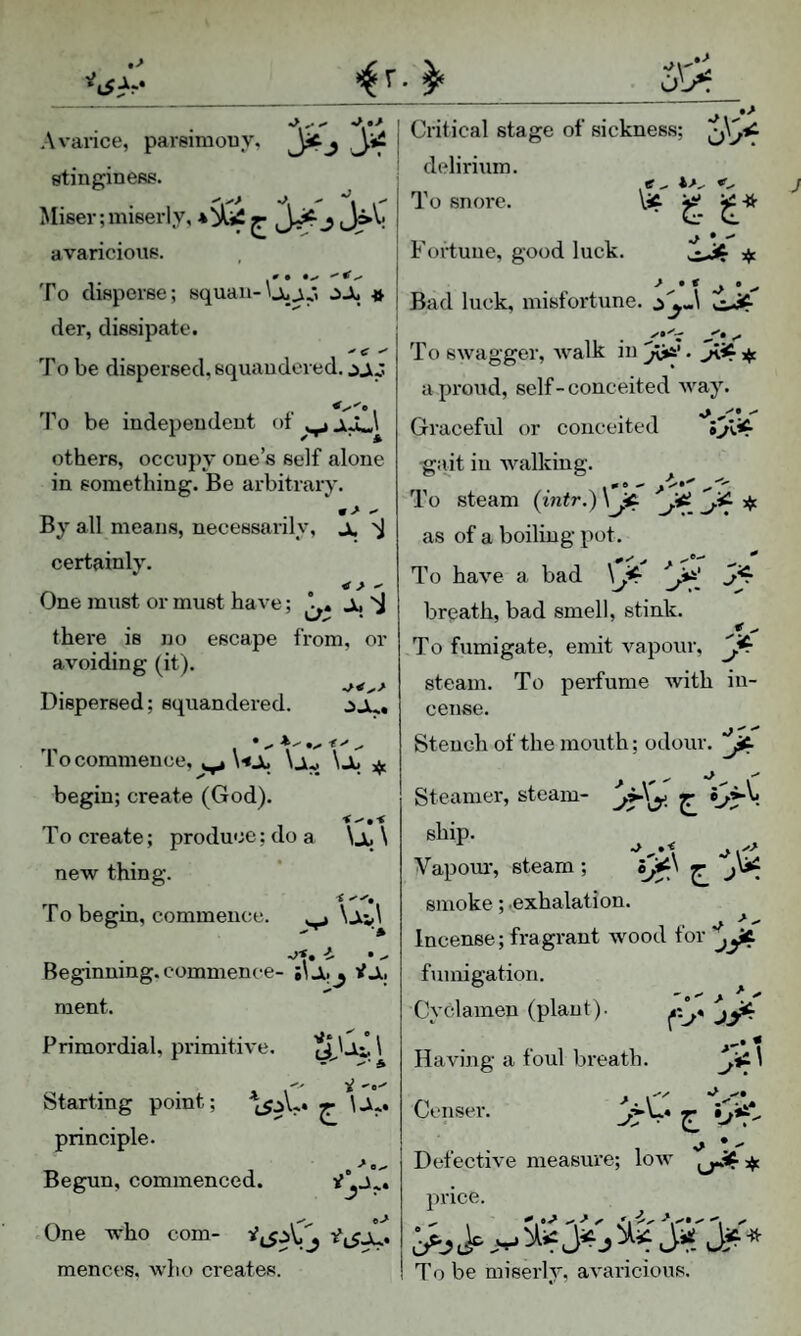 بُحْرَان ﴿٢٠﴾ مُبْدِئ
Critical stage of sickness; بُحْرَان
delirium.
To snore. ✻ بَخَّ يَبُخُّ بَخًّا
Fortune, good luck. ✻ بَخْتٌ
Bad luck, misfortune. بَخْتٌ أَسْوَدُ
To swagger, walk in ✻ بَخْتَرَ. تَبَخْتَرَ
a proud, self-conceited way.
Graceful or conceited بَخْتَرَةٌ
gait in walking.
To steam (intr.) ✻ بَخَرَ يَبْخَرُ بَخْرًا
as of a boiling pot.
To have a bad بَخِرَ يَبْخَرُ بَخَرًا
breath, bad smell, stink.
To fumigate, emit vapour, بَخَّرَ
steam. To perfume with in-
cense.
Stench of the mouth; odour. بَخَرٌ
Steamer, steam- بَاخِرَةٌ ج بَوَاخِرُ
ship.
Vapour, steam; بُخَارٌ ج أَبْخِرَةٌ
smoke; exhalation.
Incense; fragrant wood for بَخُورٌ
fumigation.
Cyclamen (plant). بَخُورُ مَرْيَمَ
Having a foul breath. أَبْخَرُ
Censer. مِبْخَرَةٌ ج مَبَاخِرُ
Defective measure; low ✻ بَخْسٌ
price.
✻ بَخِلَ يَبْخَلُ بَخَلًا وبَخُلَ يَبْخُلُ بُخْلًا
To be miserly, avaricious.
Avarice, parsimony, بُخْلٌ وبَخَلٌ
stinginess.
Miser; miserly, بَاخِلٌ وبَخِيلٌ ج بُخَلَاءُ
avaricious.
To disperse; squan- ✻ بَدَّ. بَدَّدَ تَبْدِيدًا
der, dissipate.
To be dispersed, squandered. تَبَدَّدَ
To be independent of إِسْتَبَدَّ بِ
others, occupy one's self alone
in something. Be arbitrary.
By all means, necessarily, لَا بُدَّ
certainly.
One must or must have; لَا بُدَّ مِنْ
there is no escape from, or
avoiding (it).
Dispersed; squandered. مُبَدَّدٌ
To commence, ✻ بَدَأَ يَبْدَأُ بَدْءًا بِ
begin; create (God).
To create; produce; do a أَبْدَأَ
new thing.
To begin, commence. إِبْتَدَأَ بِ
Beginning, commence- بَدْءٌ وبَدْأَةٌ
ment.
Primordial, primitive. إِبْتِدَائِيٌّ
Starting point; مَبْدَأٌ ج مَبَادِئُ
principle.
Begun, commenced. مَبْدُوءٌ
One who com- مُبْدِئٌ وبَادِئٌ
mences, who creates.